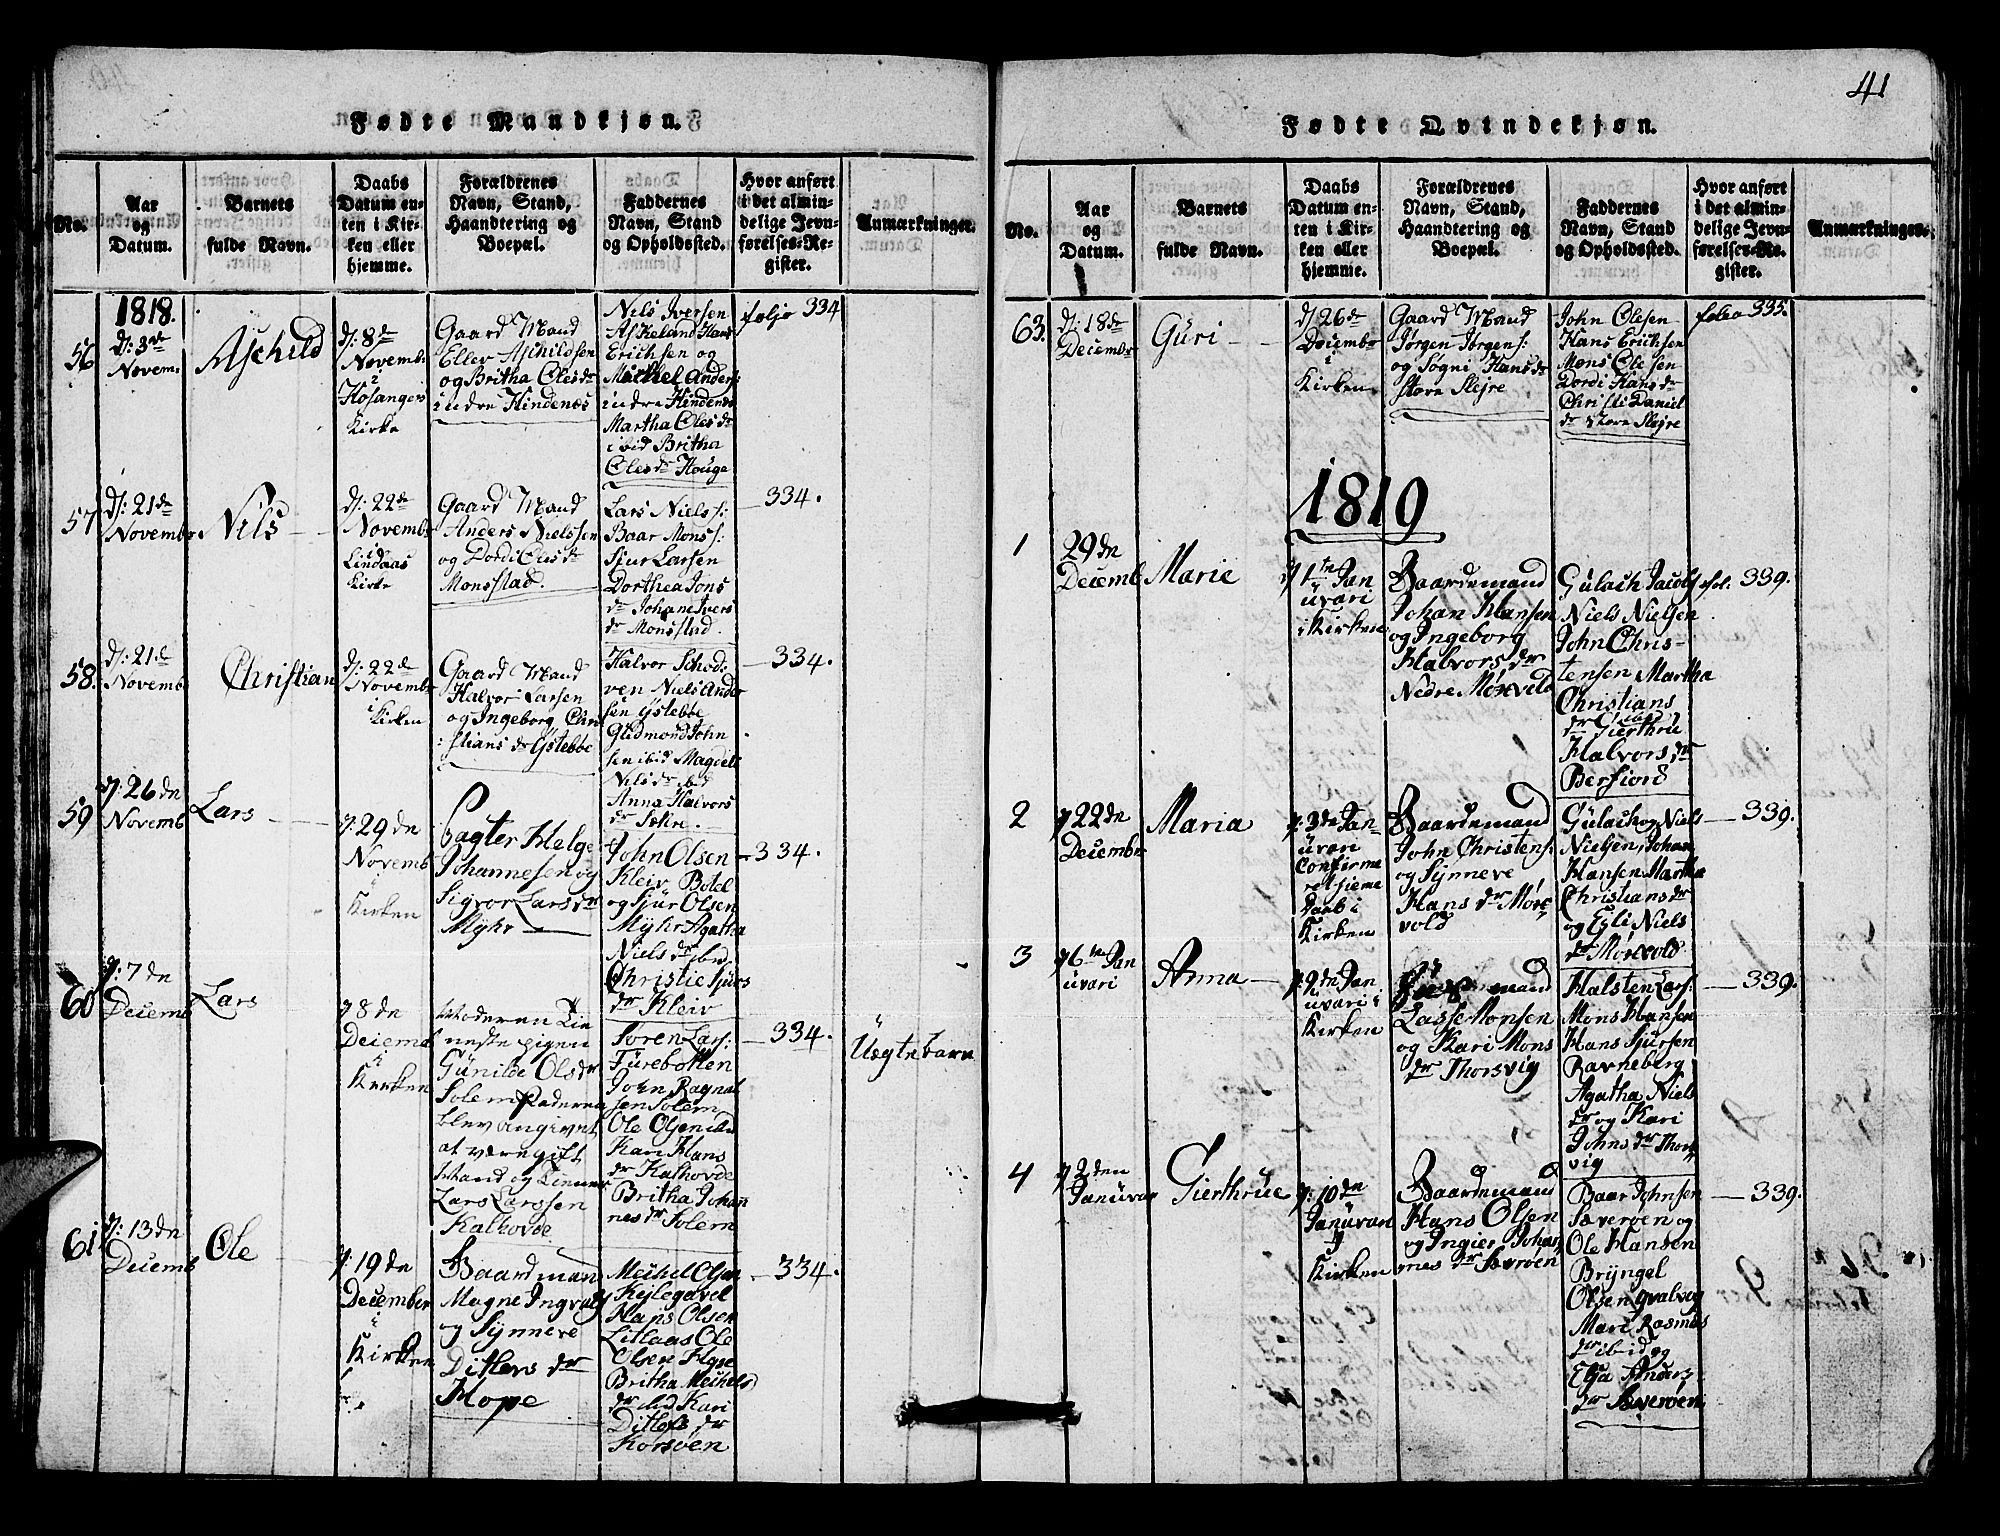 Fødte Mandkjøn.
No.
Aar
og
Datum.
Barnets
fulde Navn.
Daabs
Datum en-
ten i Kir-
ken eller
hjemme.
Forældrenes
Navn, Stand,
Haandtering og
Boepæl.
Faddernes
Navn, Stand
og Opholdssted.
Hvor anført
i det almin-
delige Jevn-
førelses-Re-
gister.
Anmærkninger.
1818.
56
d: 3de
Novem:
Aschild
d: 8de
Novemb:
i
Hosanger
Kirke
Gaard Mand
Eller Aschildsen
og Britha Olesdr
indre Hindenes
Nils Iversen
Askeland Hans
Erichsen og
Michel Anders:
indre Hindenes
Martha Olesdr
ibid Britha
Olesdr Houge
foljo 334
57
d: 21de
Novembr
Nils
d: 22de
Novembr
i
Lindaas
Kirke
Gaard Mand
Anders Nielssen
og Dordi Olesdr
Monsstad.
Lars Niels s:
Baar Mons s:
Sjur Larsen
Dorthea Jons
dr Johane Ivers
dr Monsstad.
334.
58.
d: 21de
Novemb
Christian
d: 22de
Novembr
i
Kirken
Gaard Mand
Halvor Larsen
og Ingeborg Chri
stians dr Ystebøe
Halvor Schod:
ven Niels Ander
sen Ystebøe
Gudmond John
sen ibid Magdeli
Nils dr ibid
Anna Halvors
dr Sæhre.
334.
59
d: 26 dn
Novemb
Lars
d: 29 dn
Novemb
i
Kirken
Pagter Helge
Johannesen og
Sigvor Lars dr
Myhr
John Olsen
Kleiv Botel
og Sjur Olsen
Myhr Agatha
Niels dr ibid
Christie Sjurs
dr Kleiv
334.
60
d: 7 dn
Decemb
Lars
d 8 dn
Decemb
i
Kirken
Moderen Tie
neste pigen
Gunilde Ols dr
Solem Faderen
blev angivet
at være gift
Mand og Tienner
Lars Larssen
Kalhovde
Søren Lars:
Furebotten
John Ragnal
sen Solem
Ole Olsen ibid
Kari Hans
dr Kalhovde
Britha Johan
nes dr Solem
334.
Uægte barn
61
d: 13 dn
Decemb
Ole
d: 19 dn
December
i
Kirken
Baardman
Magne Ingvals
og Synneve
Ditlevs dr
Hope
Meihel Olsen
Kejlegavel
Hans Olsen
Litlaas Ole
Olsen Hope
Britha Meihels
dr ibid Kari
Ditlefs dr
Korsøen
334.
41
Fødte Qvindekjøn.
No.
Aar
og
Datum.
Barnets
fulde Navn.
Daabs
Datum en-
ten i Kir-
ken eller
hjemme.
Forældrenes
Navn, Stand,
Haandtering og
Boepæl.
Faddernes
Navn, Stand
og Opholdssted.
Hvor anført
i det almin-
delige Jevn-
førelses-Re-
gister.
Anmærkninger.
63.
d: 18de
Decembr
Guri
d 26de
Decembr
i
Kirken
Gaard Mand
Jørgen Jørgens:
og Søgni Hans dr
store Slejre
John Olesen
Hans Erichsen
Mons Olesen
Dordi Hans dr
Christi Daniel
dr store Slejre
foleo 335.
1819
1
29 dn
Decemb
Marie
d 1tn Jan
uvari
i Kirken
Baardemand
Johan Hansen
og Ingeborg
Halvors dr
Nedre Mørvold
Gulach Jacobs
Niels Nielsen
John Chris-
tensen Martha
Christians
dr Gierthrue
Halvors dr
Bersiord
fol. 339.
2
d 22 dn
Decembr
Maria
d: 3 dn Jan-
uvari
Confirme
ret hieme
Daab i
Kirken
Baardemand
John Christens:
og Synneve
Hans dr Mør
vold
Gulach og Niels
Nielsen, Johan
Hansen Martha
Christians dr
og Egli Niels
dr Mørevold
339.
3
d 6tn Jan
uvari
Anna
d: 9 dn Jan
uvari i
Kirken
Lasse Monsen
og Kari Mons
dr Thorsvig
Halsten Lars:
Mons Hansen
Hans Sjursen
Ravneberg
Agatha Niels
dr og Kari
Johns dr Thors
vig
339.
4
d 2 den
Januvar
Gierthrue
d: 10 dn
Januvari
Kirken
Baardemand
Hans Olsen
og Ingier Johan
nes dr Sæverøen
Baar Johnsen
Sæverøen og
Ole Hansen
Bryngel
Olsen Qvalvog
Mari Rasmus
dr ibid og
Elsa Anders
dr Sæverøen
339.